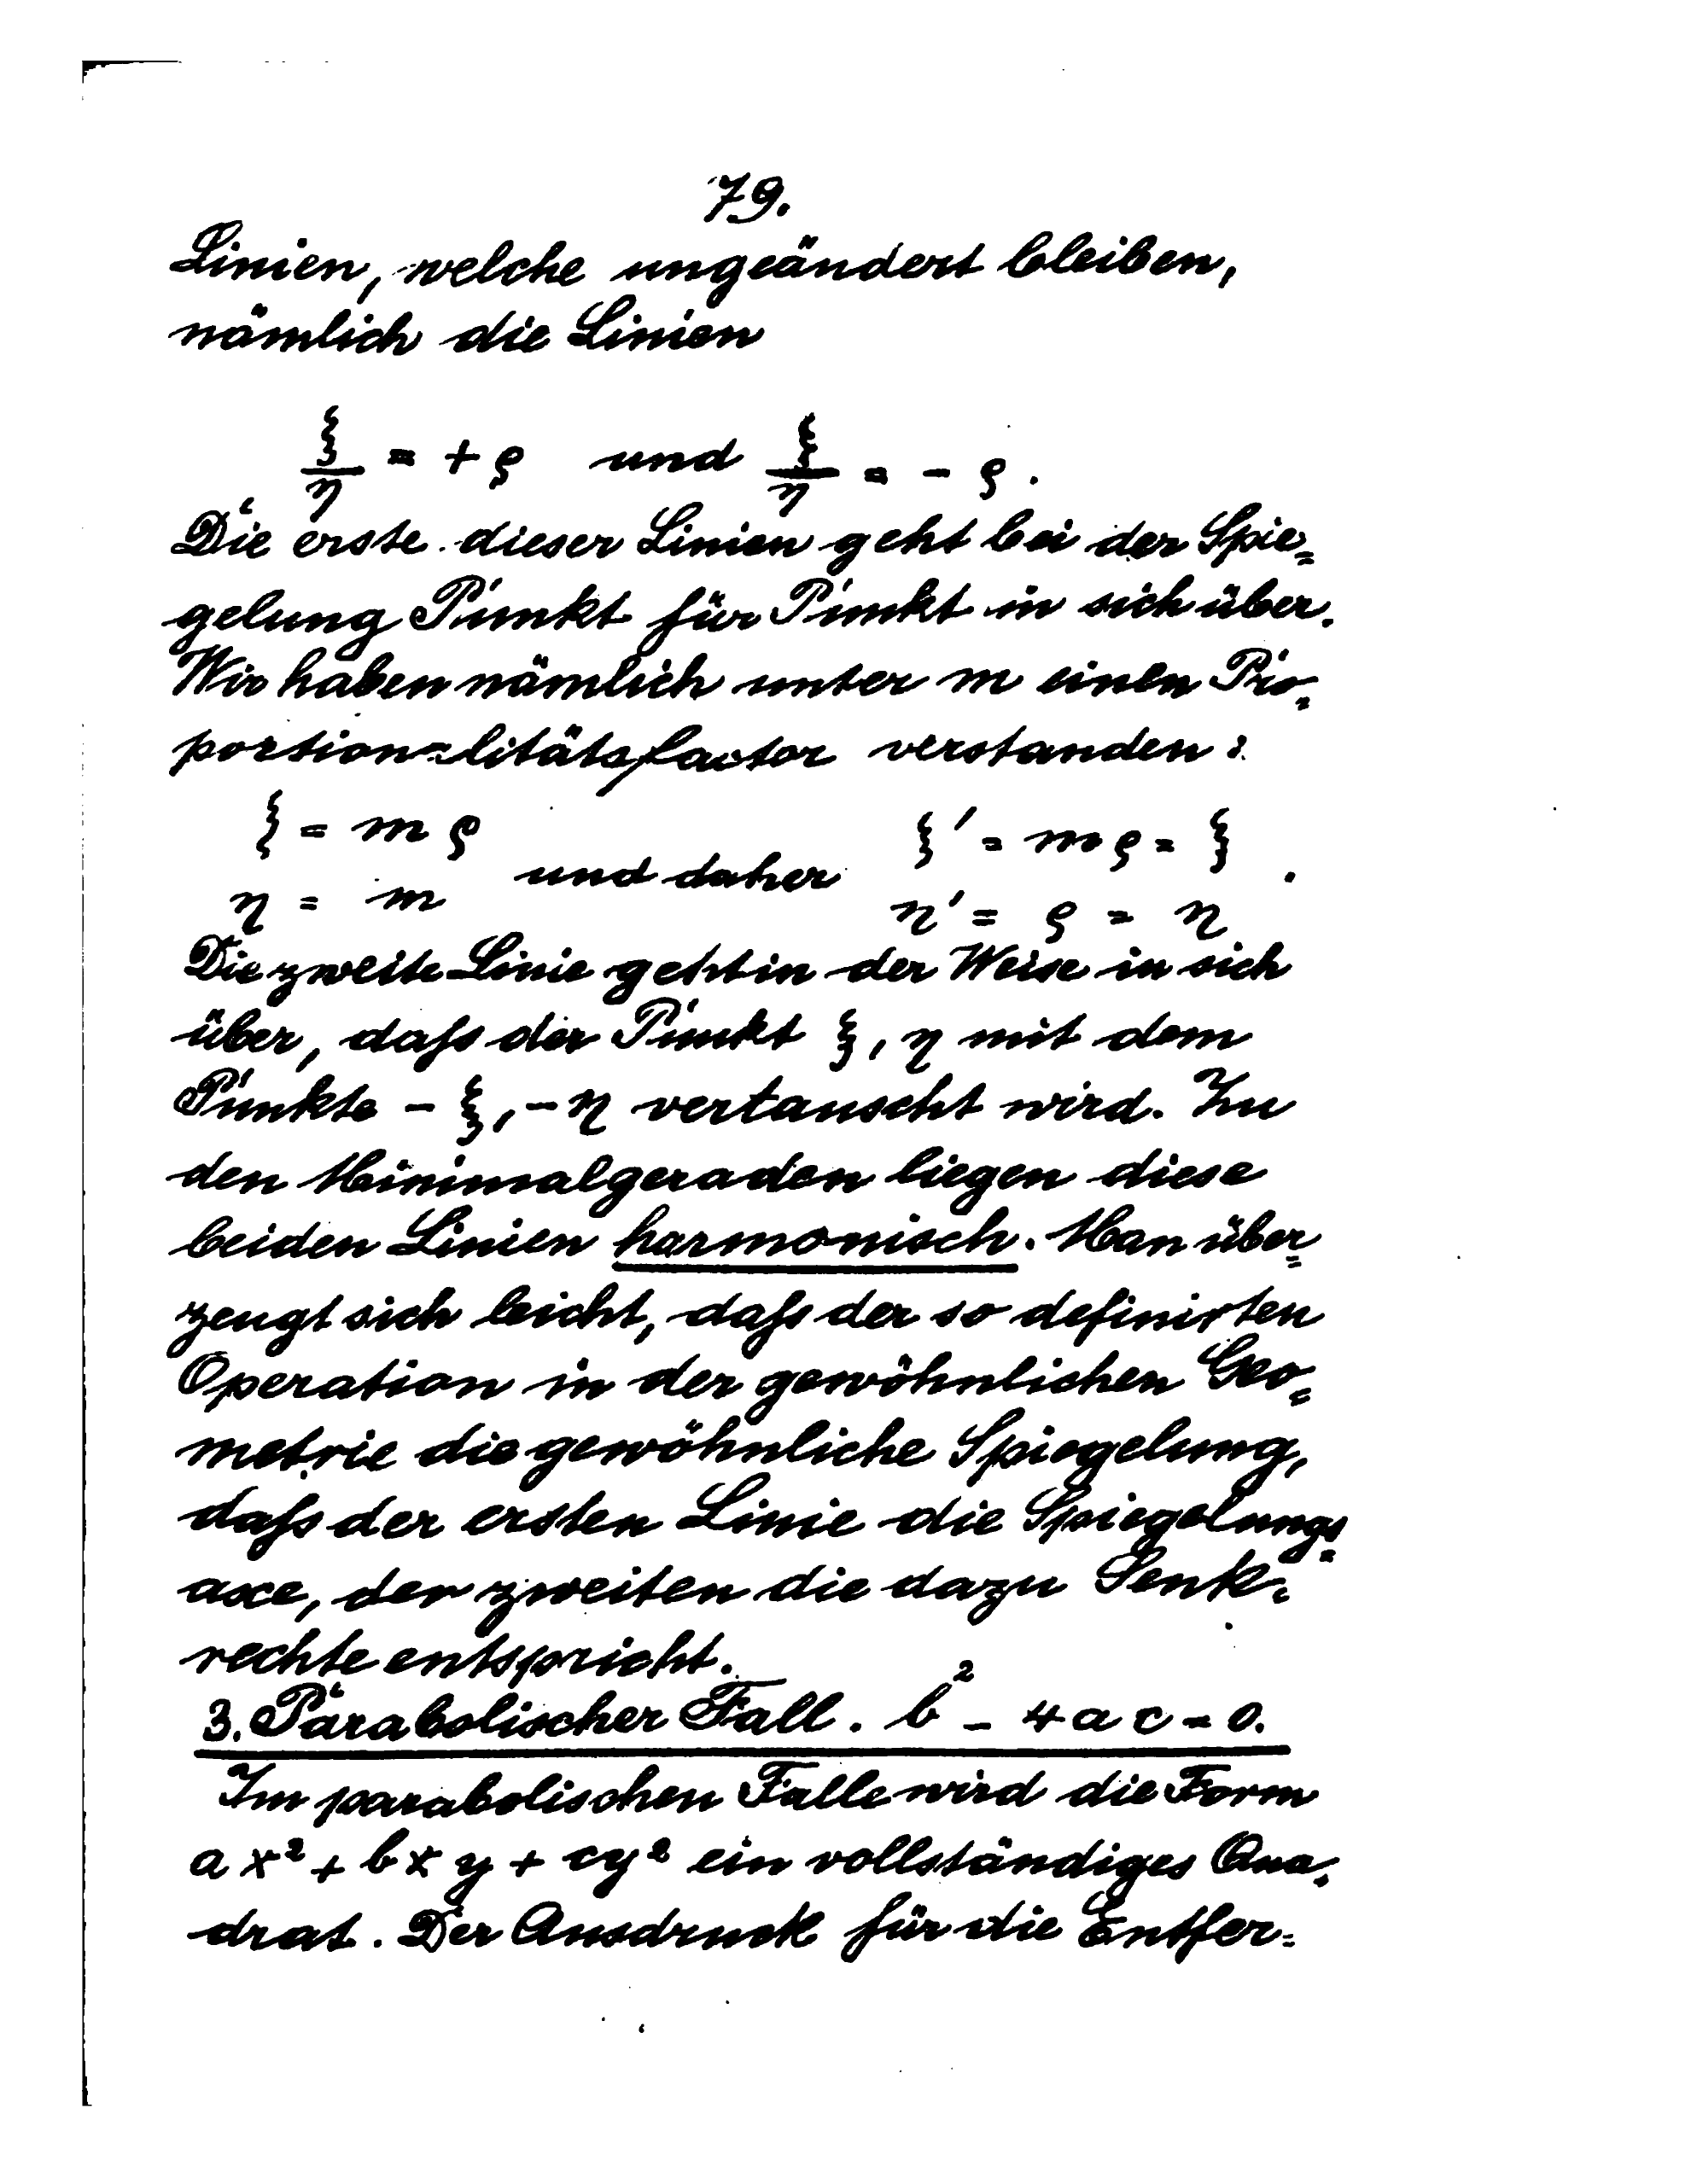 79.
Linien, welche ungeändert bleiben,
nämlich die Linien
ξ/η = + ρ und ξ/η = - ρ.
Die erste dieser Linien geht bei der Spie=
gelung Punkt für Punkt in sich über.
Wir haben nämlich unter m einen Pro=
portionalitätsfactor verstanden:
ξ = m ρ und daher ξ' = m ρ = ξ
η = m η' = ρ = η.
Die zweite Linie geht in der Weise in sich
über, daß der Punkt ξ, η mit dem
Punkte - ξ, - η vertauscht wird. Zu
den Minimalgeraden liegen diese
beiden Linien harmonisch. Man über=
zeugt sich leicht, daß der so definirten
Operation in der gewöhnlichen Geo=
metrie die gewöhnliche Spiegelung,
daß der ersten Linie die Spiegelungs=
axe, der zweiten die dazu Senk=
rechte entspricht.
3. Parabolischer Fall. b² - 4 a c = 0.
Im parabolischen Falle wird die Form
a x² + b x y + c y² ein vollständiges Qua=
drat. Der Ausdruck für die Entfer=